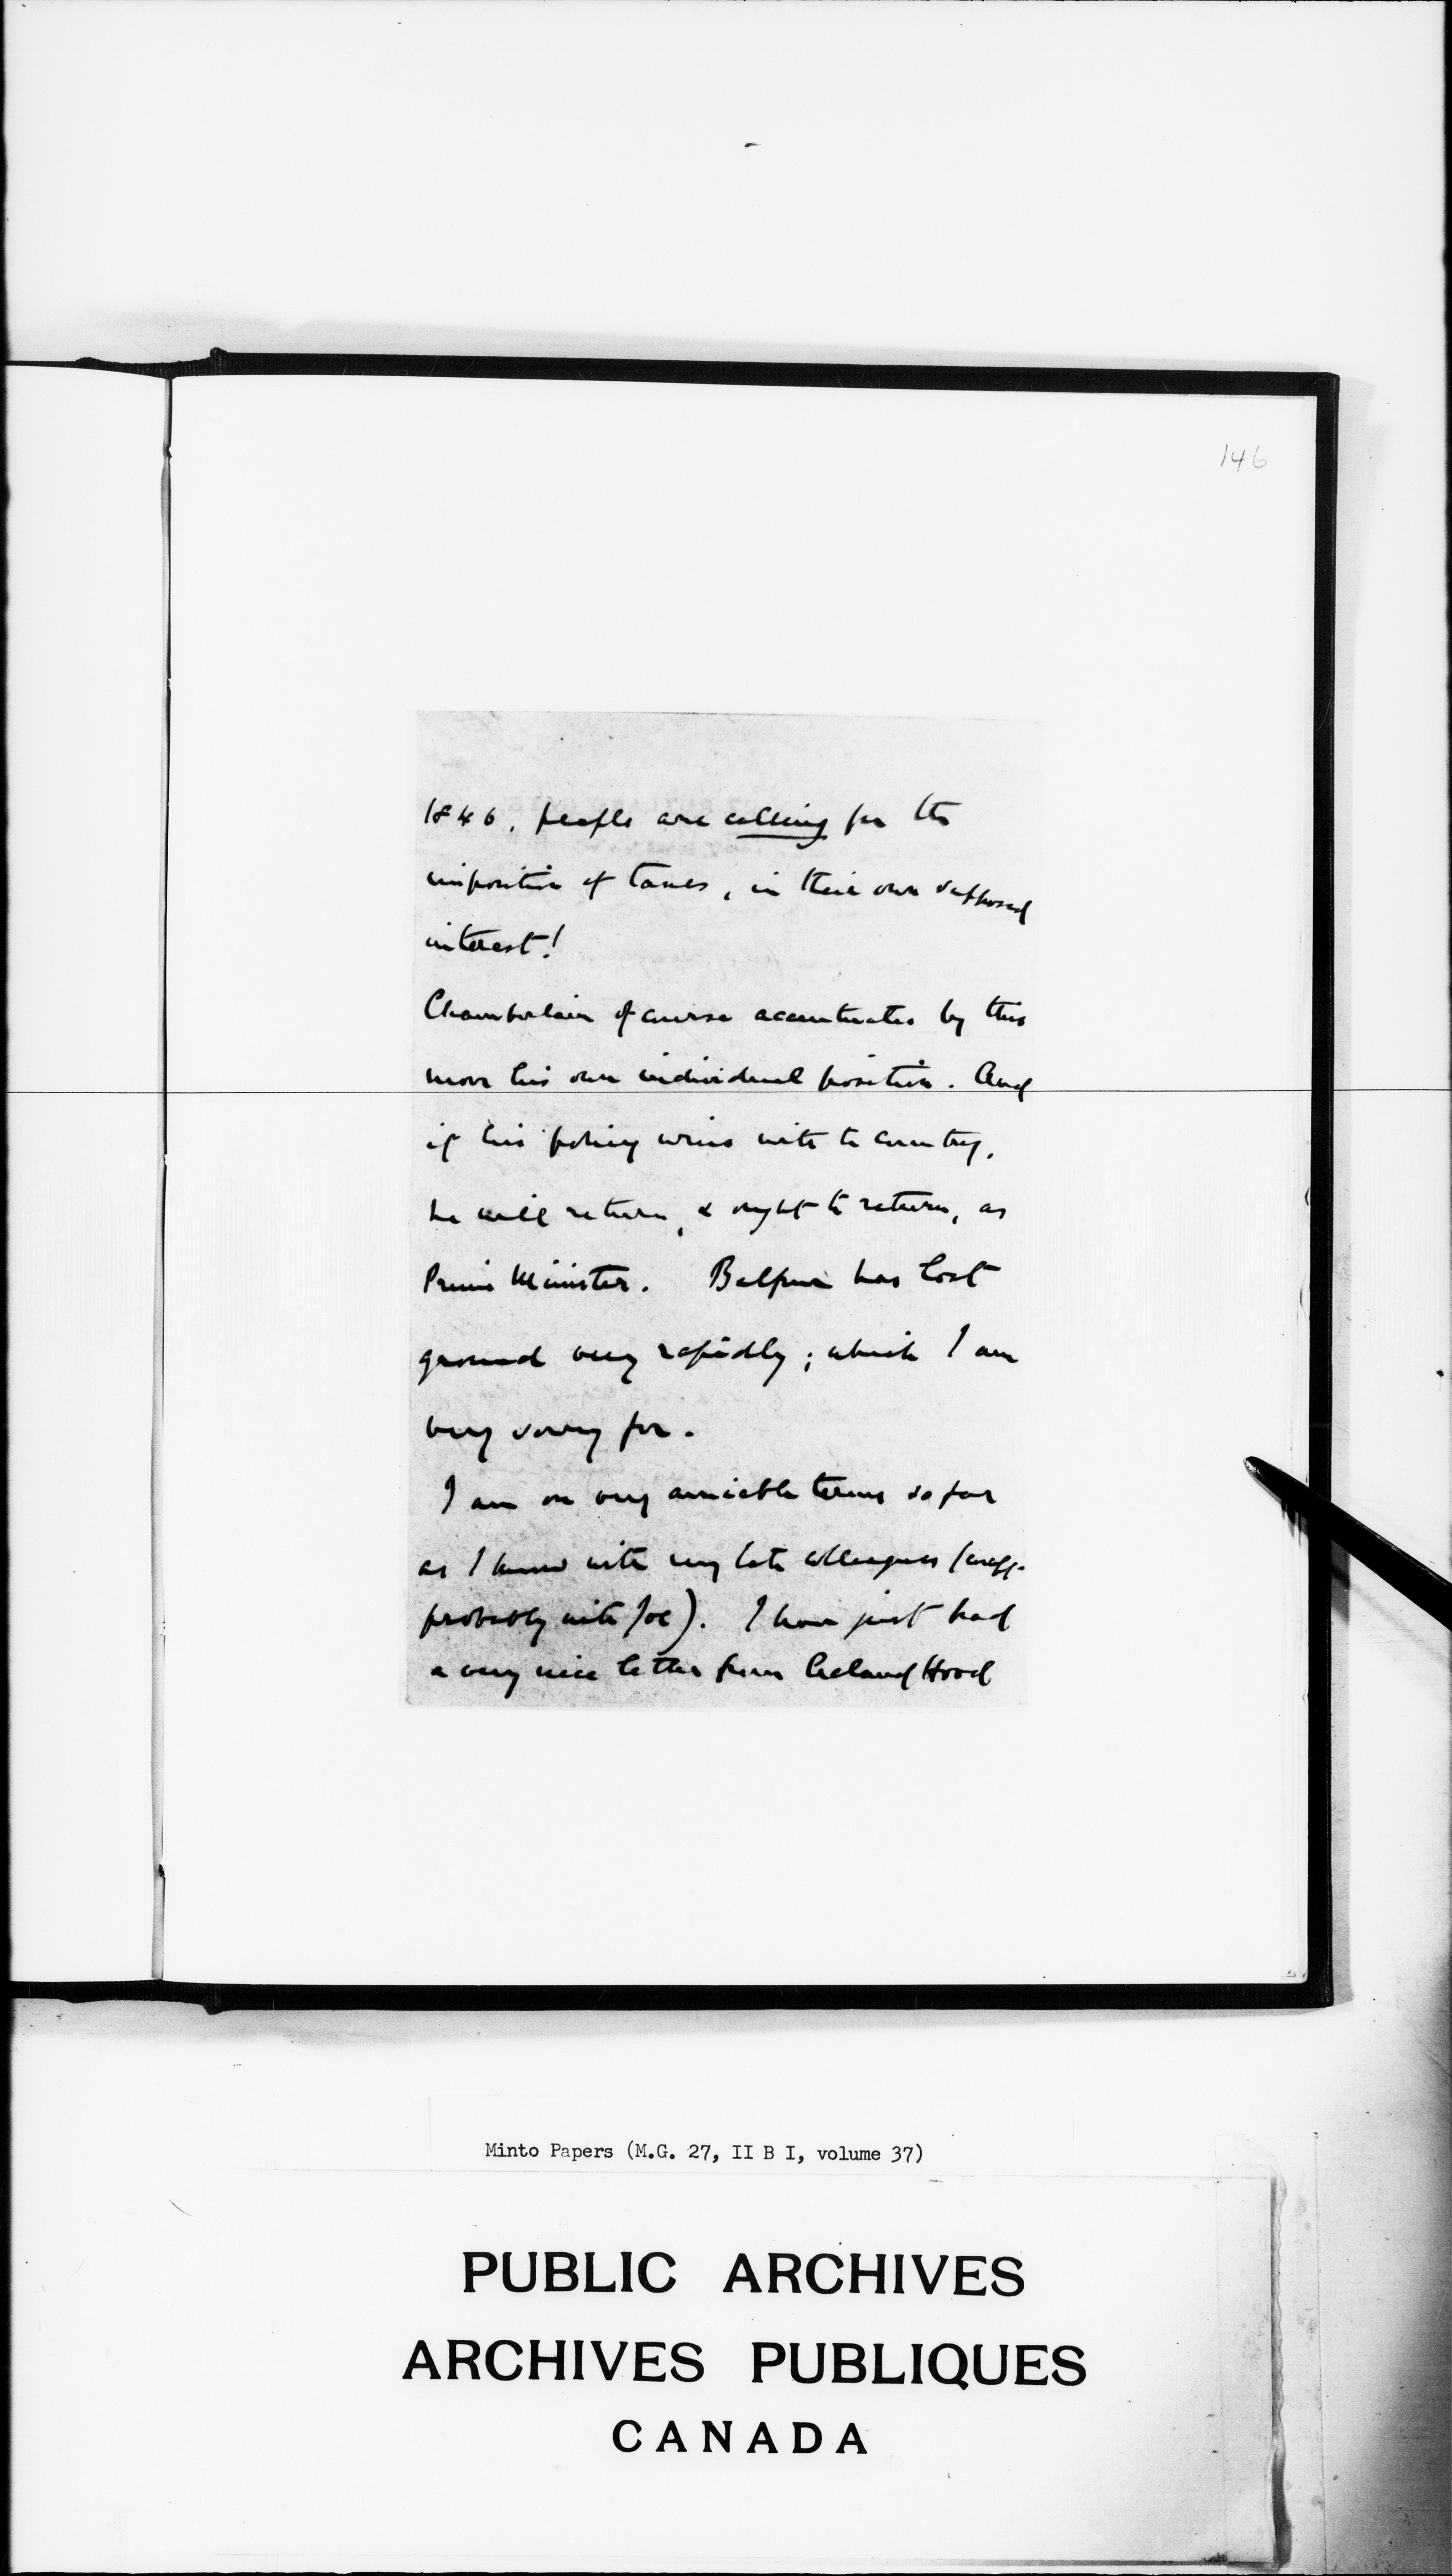 146
1846, people are calling for the
imposition of taxes, in their own supposed
interest!
Chamberlain of course accentuates by this
move his own individual position. And
if his policy wins with the country,
he will return, & ought to return, as
Prime Minister. Balfour has lost
ground very rapidly; which I am
very sorry for.
I am on very amicable terms so far
as I know with my late colleagues (
probably with Joe). I have just had
a very nice letter from Acland Hood
Minto Papers (M.G. 27, II B I, volume 37)
PUBLIC ARCHIVES
ARCHIVES PUBLIQUES
CANADA